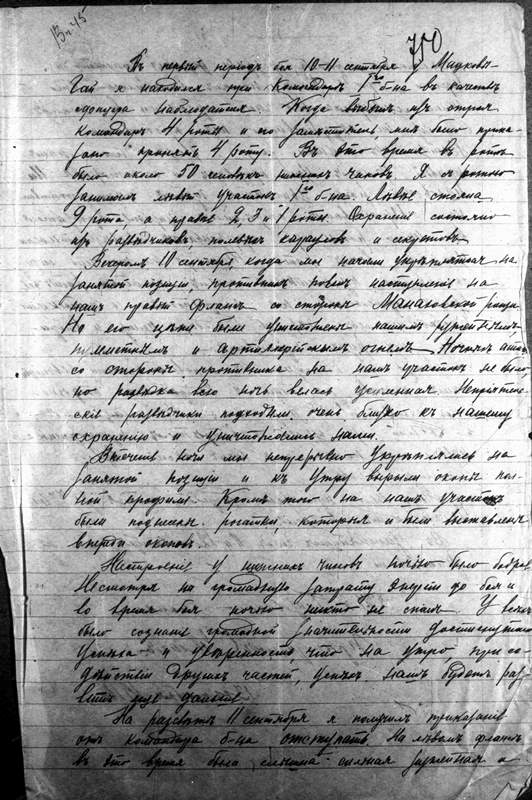 750
Въ первый періодъ боя 10-11 сентября у
Гай я находился при Командирѣ 1го б-на въ качествѣ
наблюдателя. Когда выбылъ изъ строя
командиръ 4 роты и его замѣститель мнѣ было прика-
зано принять 4 роту. Въ это время въ ротѣ
было около 50 человѣкъ нижнихъ чиновъ. Я съ ротою
занималъ лѣвый участокъ 1го б-на. Лѣвѣе стояла
9 рота а правѣе 2, 3 и 1 роты. Охраненіе состояло
изъ развѣдчиковъ, полевыхъ карауловъ и секретовъ.
Вечеромъ 10 сентября, когда мы начали укрѣпляться на
занятой позиціи, противникъ повелъ наступленіе на
нашъ правый флангъ со стороны рощи.
Но его цѣпи были уничтожены нашимъ ружейнымъ
пулеметнымъ и артиллерійскимъ огнемъ. Ночныхъ атакъ
со стороны противника на нашъ участокъ не было,
но развѣдка всю ночь велась усиленная. Непріятель-
скіе развѣдчики подходили очень близко къ нашему
охраненію и уничтожались нами.
Втеченіе ночи мы непрерывно укрѣплялись на
занятой позиціи и къ утру вырыли окопы пол-
ной профили. Кромѣ того на нашъ участокъ
были поднесены рогатки, которыя и были выставлены
впереди окоповъ.
Настроеніе у нижнихъ чиновъ ночью было бодрое.
Несмотря на громадную затрату энергіи до боя и
во время боя ночью никто не спалъ. У всѣхъ
было сознаніе громадной значительности достигнутаго
успѣха и увѣренность, что на утро, при со-
дѣйствіи другихъ частей, успѣхъ нашъ будетъ раз-
витъ еще далѣе.
На разсвѣтѣ 11 сентября я получилъ приказаніе
отъ командира б-на отступать. На лѣвомъ флангѣ
въ это время была слышна сильная ружейная и